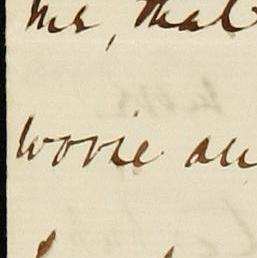 me, that
worse an